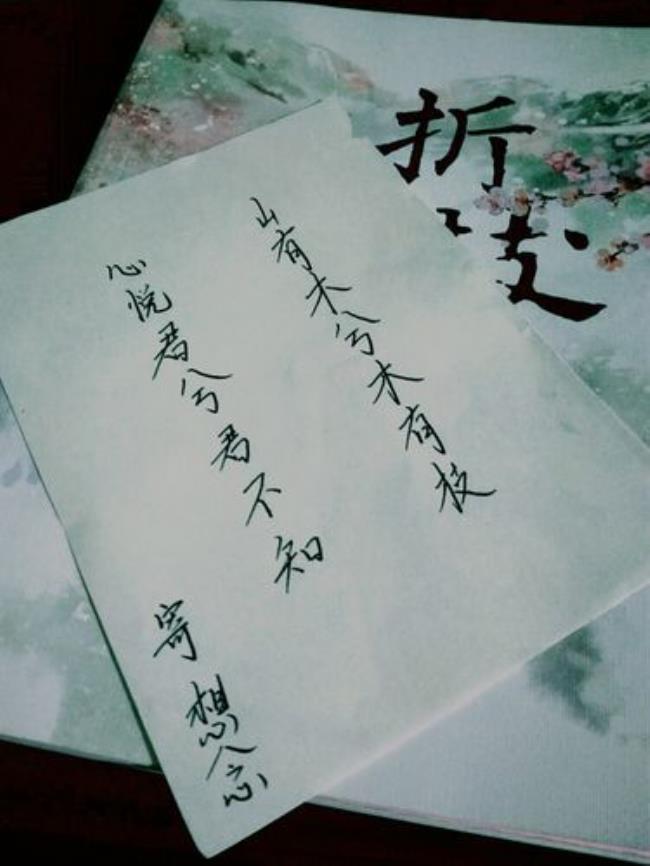 折枝
山有木兮木有枝
心悦君兮君不知
寄想念